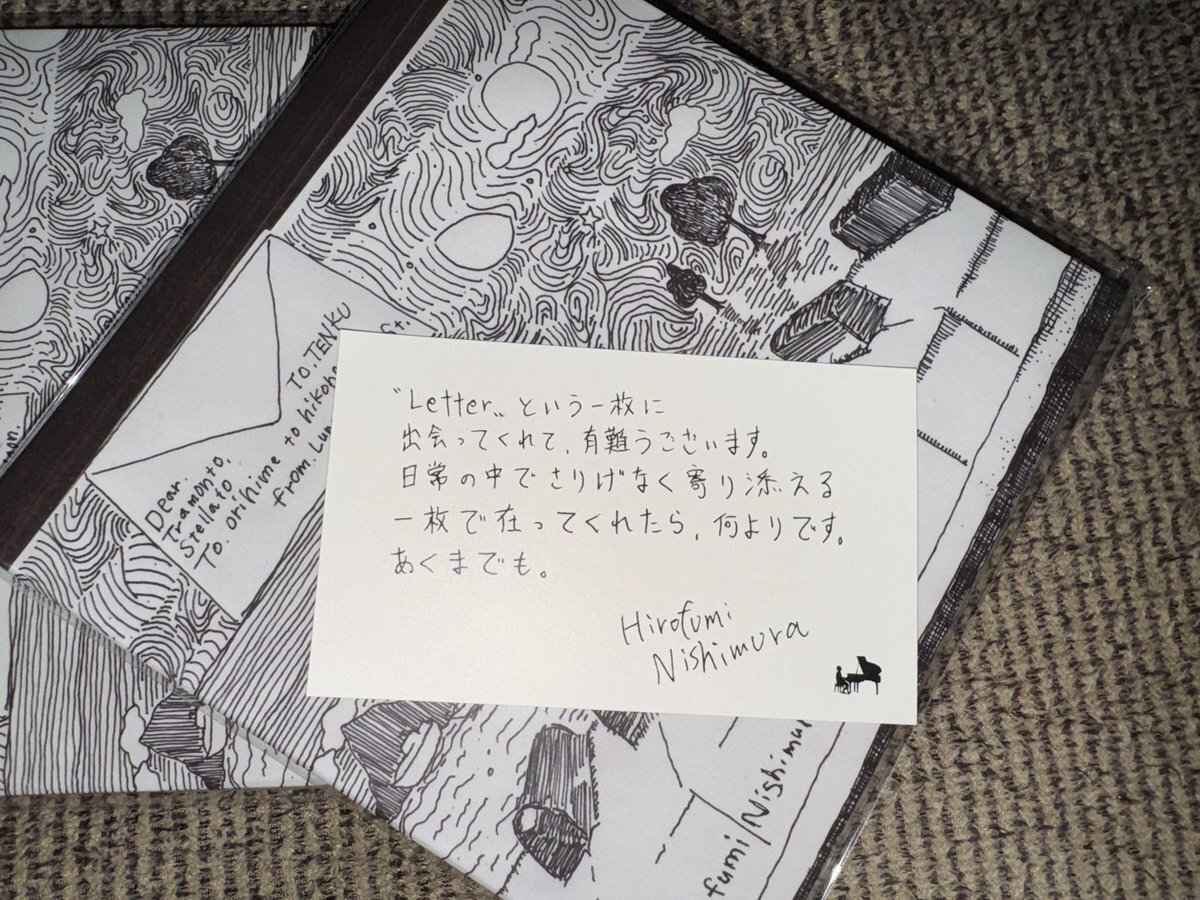 〝Letter〟という一枚に
出会ってくれて、有難うございます。
日常の中でさりげなく寄り添える
一枚で在ってくれたら、何よりです。
あくまでも。
Hirofumi
Nishimura
Dear.
Tramonto.
Stellato.
To. orihime to hikobo
from. Lun
TO. TENKU
fumi/Nishimur